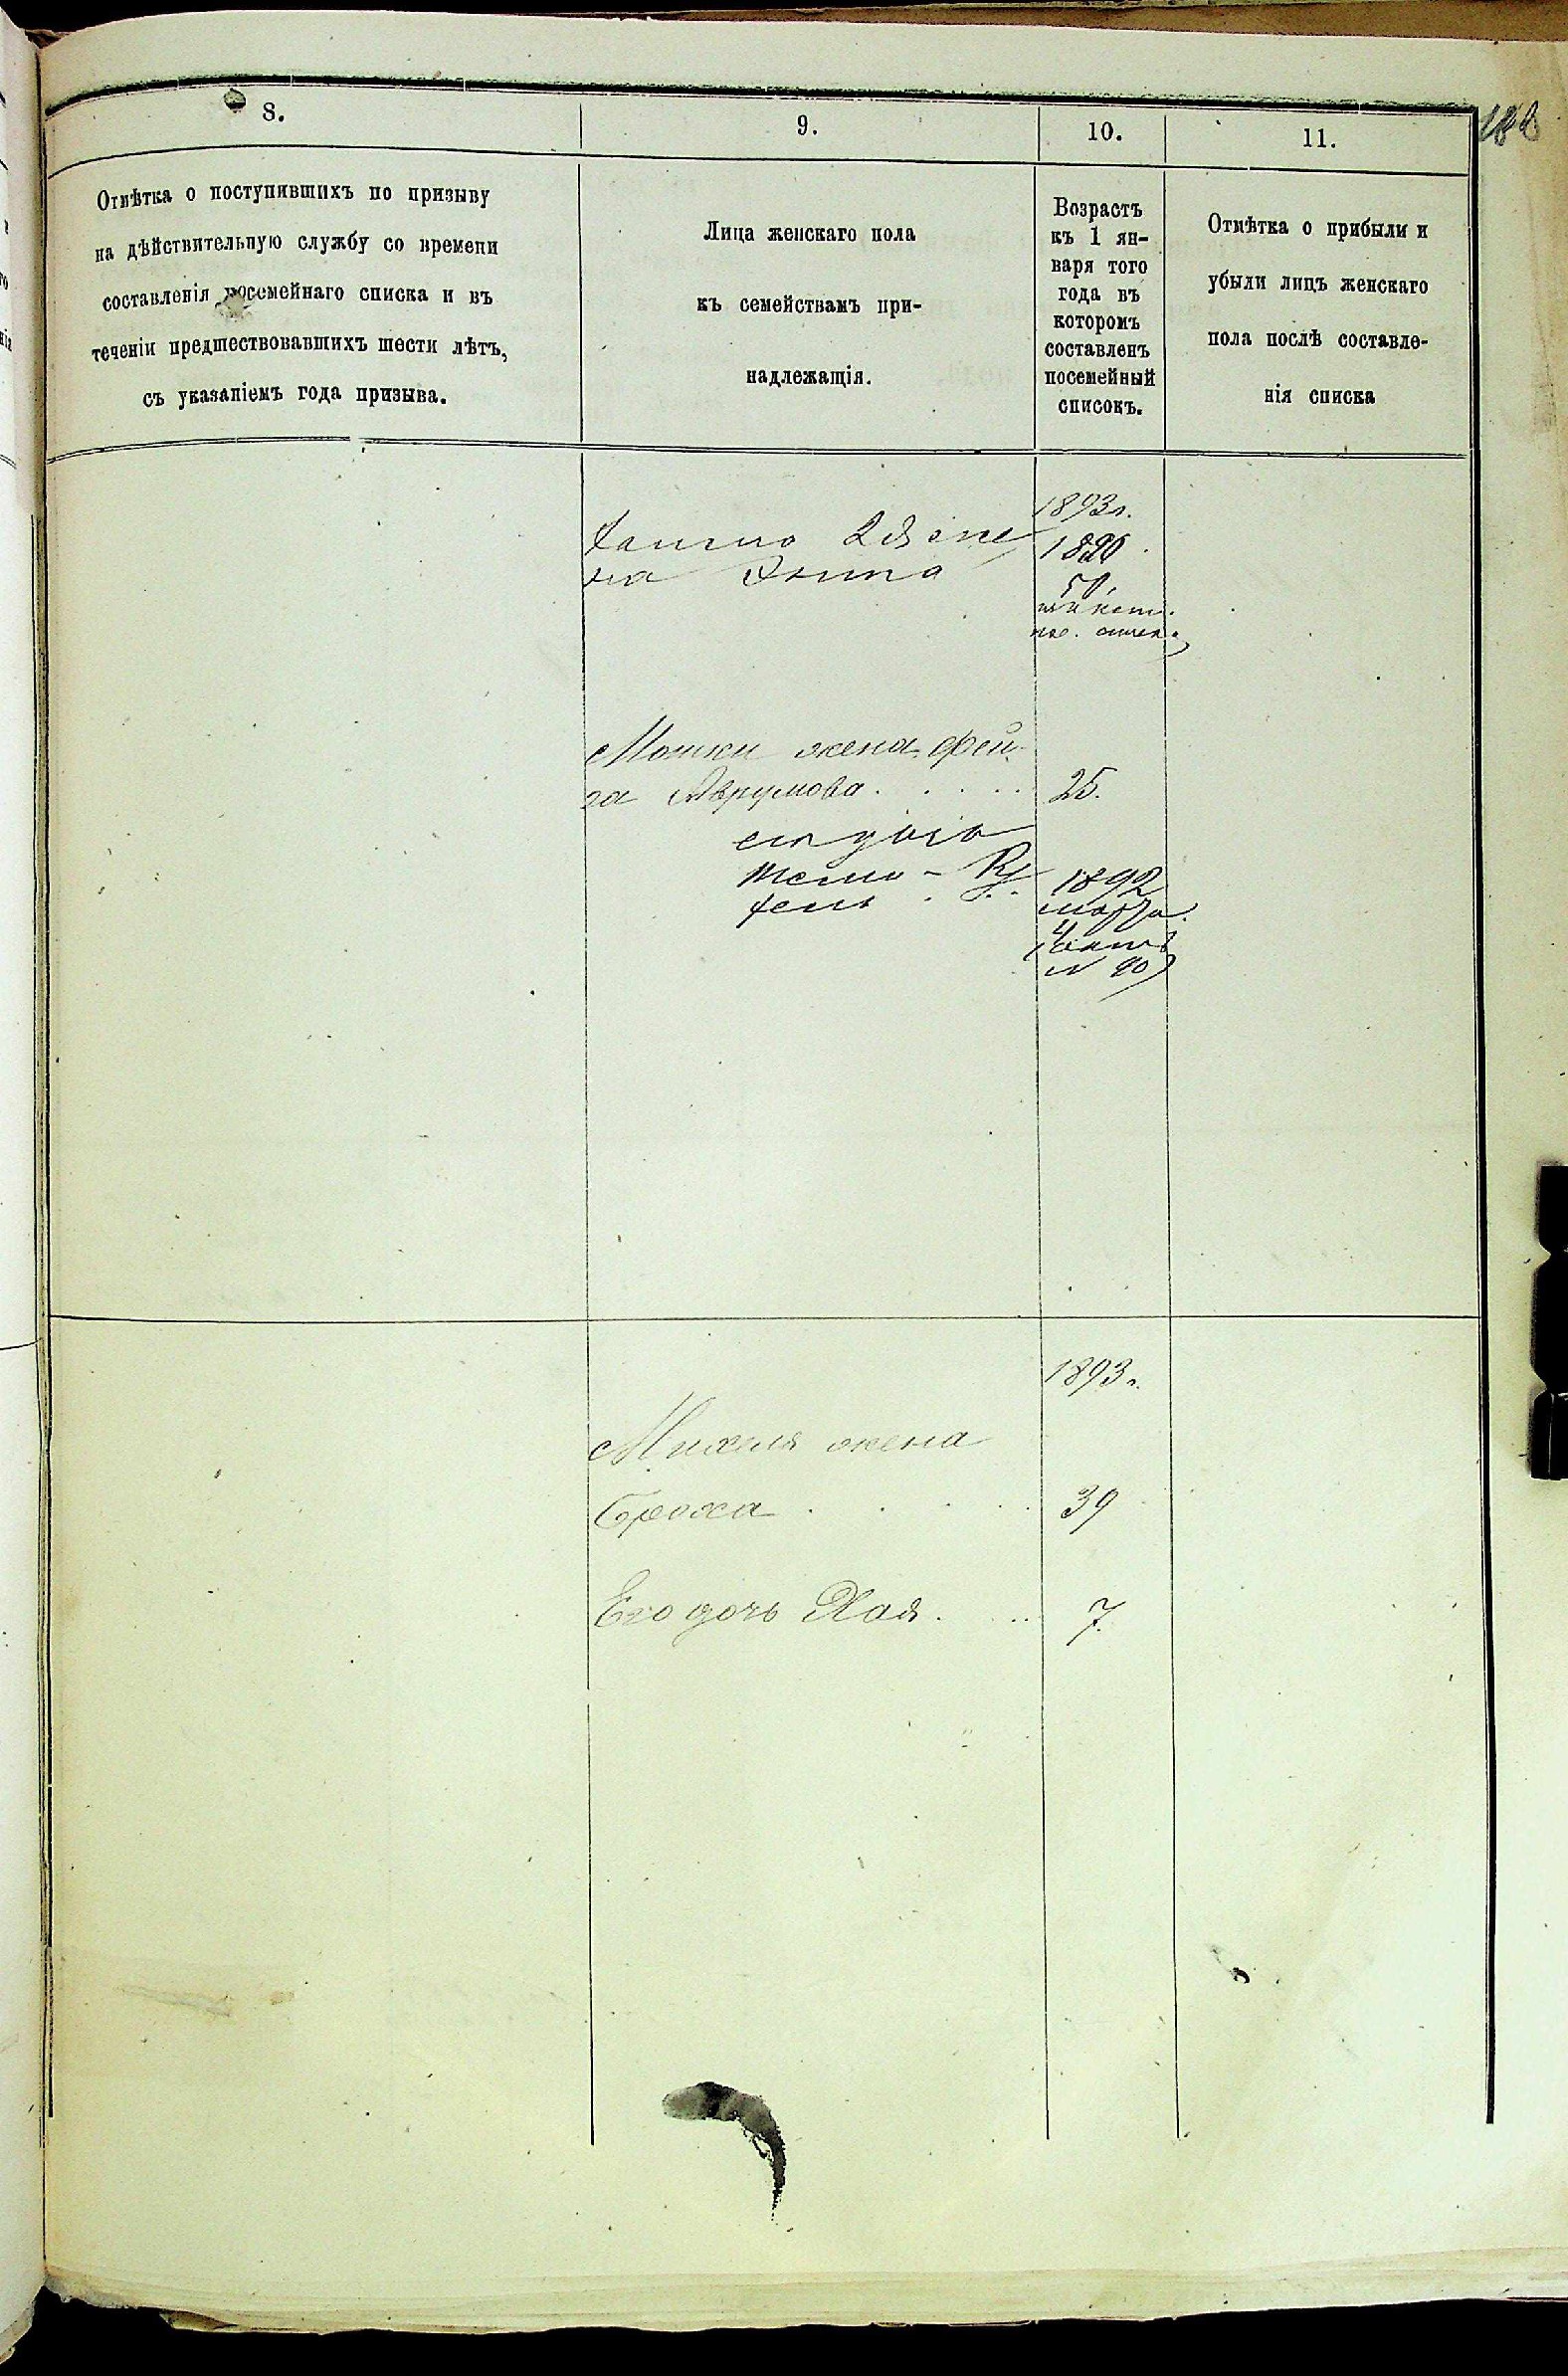 8.
9.
10.
11.
Отмѣтка о поступившихъ по призыву
на дѣйствительную службу со времени
составленія посемейнаго списка и въ
теченіи предшествовавшихъ шести лѣтъ,
съ указаніемъ года призыва.
Лица женскаго пола
къ семействамъ при-
надлежащія.
Возрастъ
къ 1 ян-
варя того
года въ
которомъ
составленъ
посемейный
списокъ.
Отмѣтка о прибыли и
убыли лицъ женскаго
пола послѣ составле-
нія списка
1893г.
на
50
Мошки жена Фей-
га Аврумова . . . . . 25.
его дочь
1892
марта
4
N 90)
1893г.
Михеля жена
Броха . . . . 39
Его дочь Хая . . . 7.